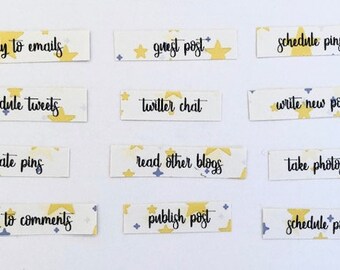 y to emails
guest post
schedule pins
dule tweets
twitter chat
write new po
ate pins
read other blogs
take photo
to comments
publish post
schedule po